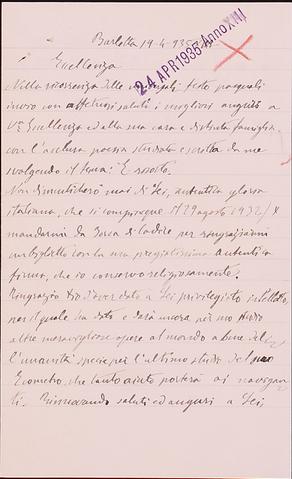 Barletta 19-4-935 XIII
24 APR 1935 Anno XIII
Eccellenza
Nella ricorrenza delle feste pasquali
invio con affettuosi saluti i migliori auguri a
Va Eccellenza ed alla sua cara e distinta famiglia,
con l'acclusa poesia studiata e scritta da me
svolgendo il tema: È risorto.
Non dimenticherò mai di Lei, autentica gloria
italiana, che si compiacque il 29 agosto 1932/X
mandarmi da Borca di Cadore per ringraziarmi
un biglietto con la sua pregiatissima autentica
firma, che io conservo religiosamente.
Ringrazio Dio d'aver dato a Lei privilegiato intelletto,
pel quale ha dato e darà ancora
altre meravigliose opere al mondo a bene del
l'umanità specie per l'ultimo studio del suo
Ecometro, che tanto aiuto porterà ai navigan
ti. Rinnovando saluti ed auguri a Lei,